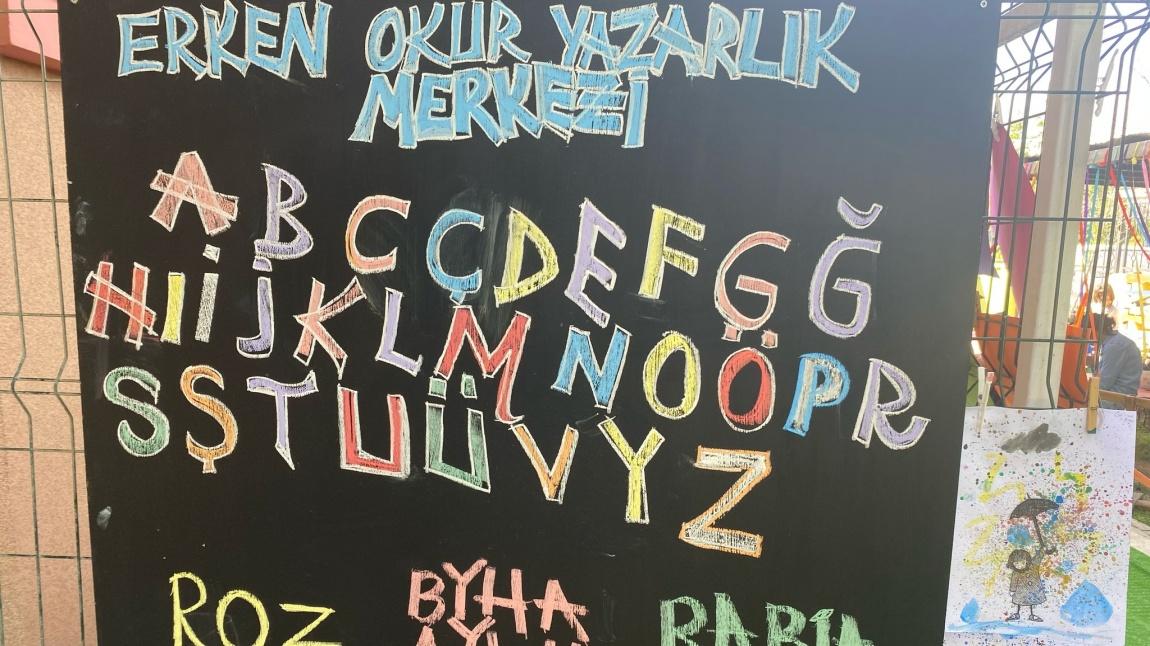 ERKEN OKUR YAZARLIK
MERKEZİ
A B C Ç D E F G Ğ
H I İ J K L M N O Ö P R
S Ş T U Ü V Y Z
ROZ BYHA